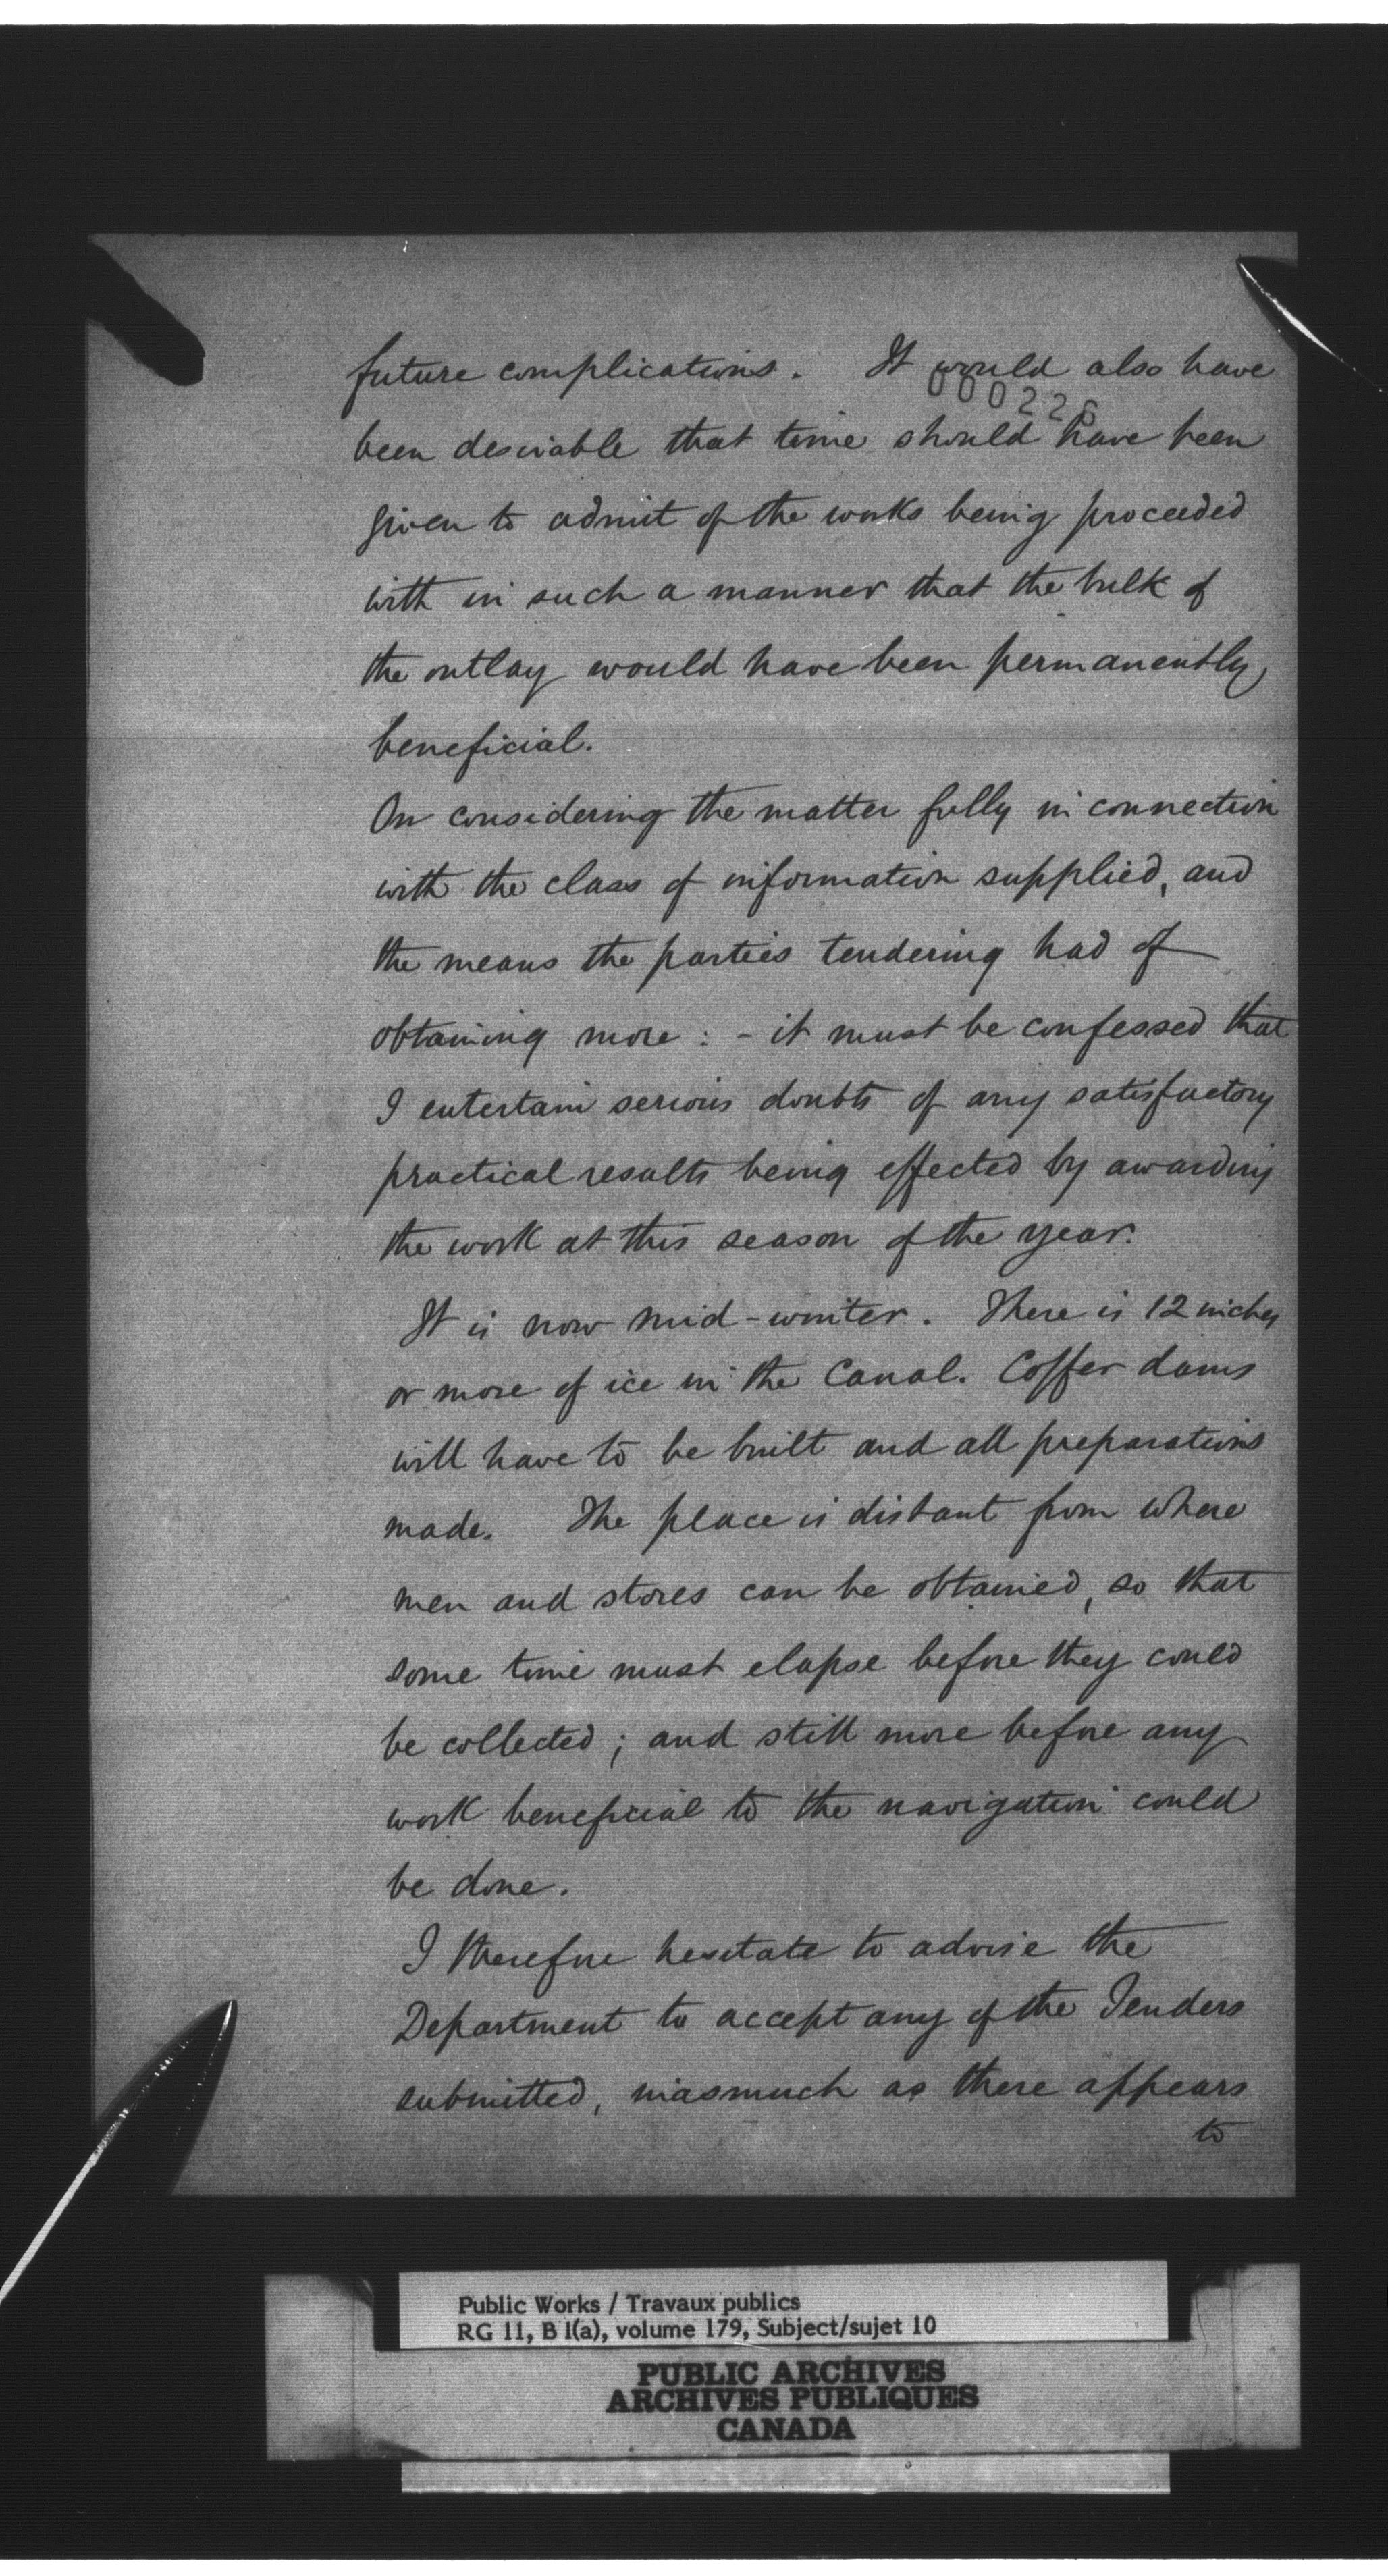 future complications. It would also have
000226
been desirable that time should have been
given to admit of the works being proceeded
with in such a manner that the bulk of
the outlay would have been permanently
beneficial.
On considering the matter fully in connection
with the class of information supplied, and
the means the parties tendering had of
obtaining more : - it must be confessed that
I entertain serious doubts of any satisfactory
practical results being effected by awarding
the work at this season of the year.
It is now mid-winter. There is 12 inches
or more of ice in the Canal. Coffer dams
will have to be built and all preparations
made. The place is distant from where
men and stores can be obtained, so that
some time must elapse before they could
be collected ; and still more before any
work beneficial to the navigation could
be done.
I therefore hesitate to advise the
Department to accept any of the Tenders
submitted, inasmuch as there appears
to
Public Works / Travaux publics
RG 11, B 1(a), volume 179, Subject/sujet 10
PUBLIC ARCHIVES
ARCHIVES PUBLIQUES
CANADA